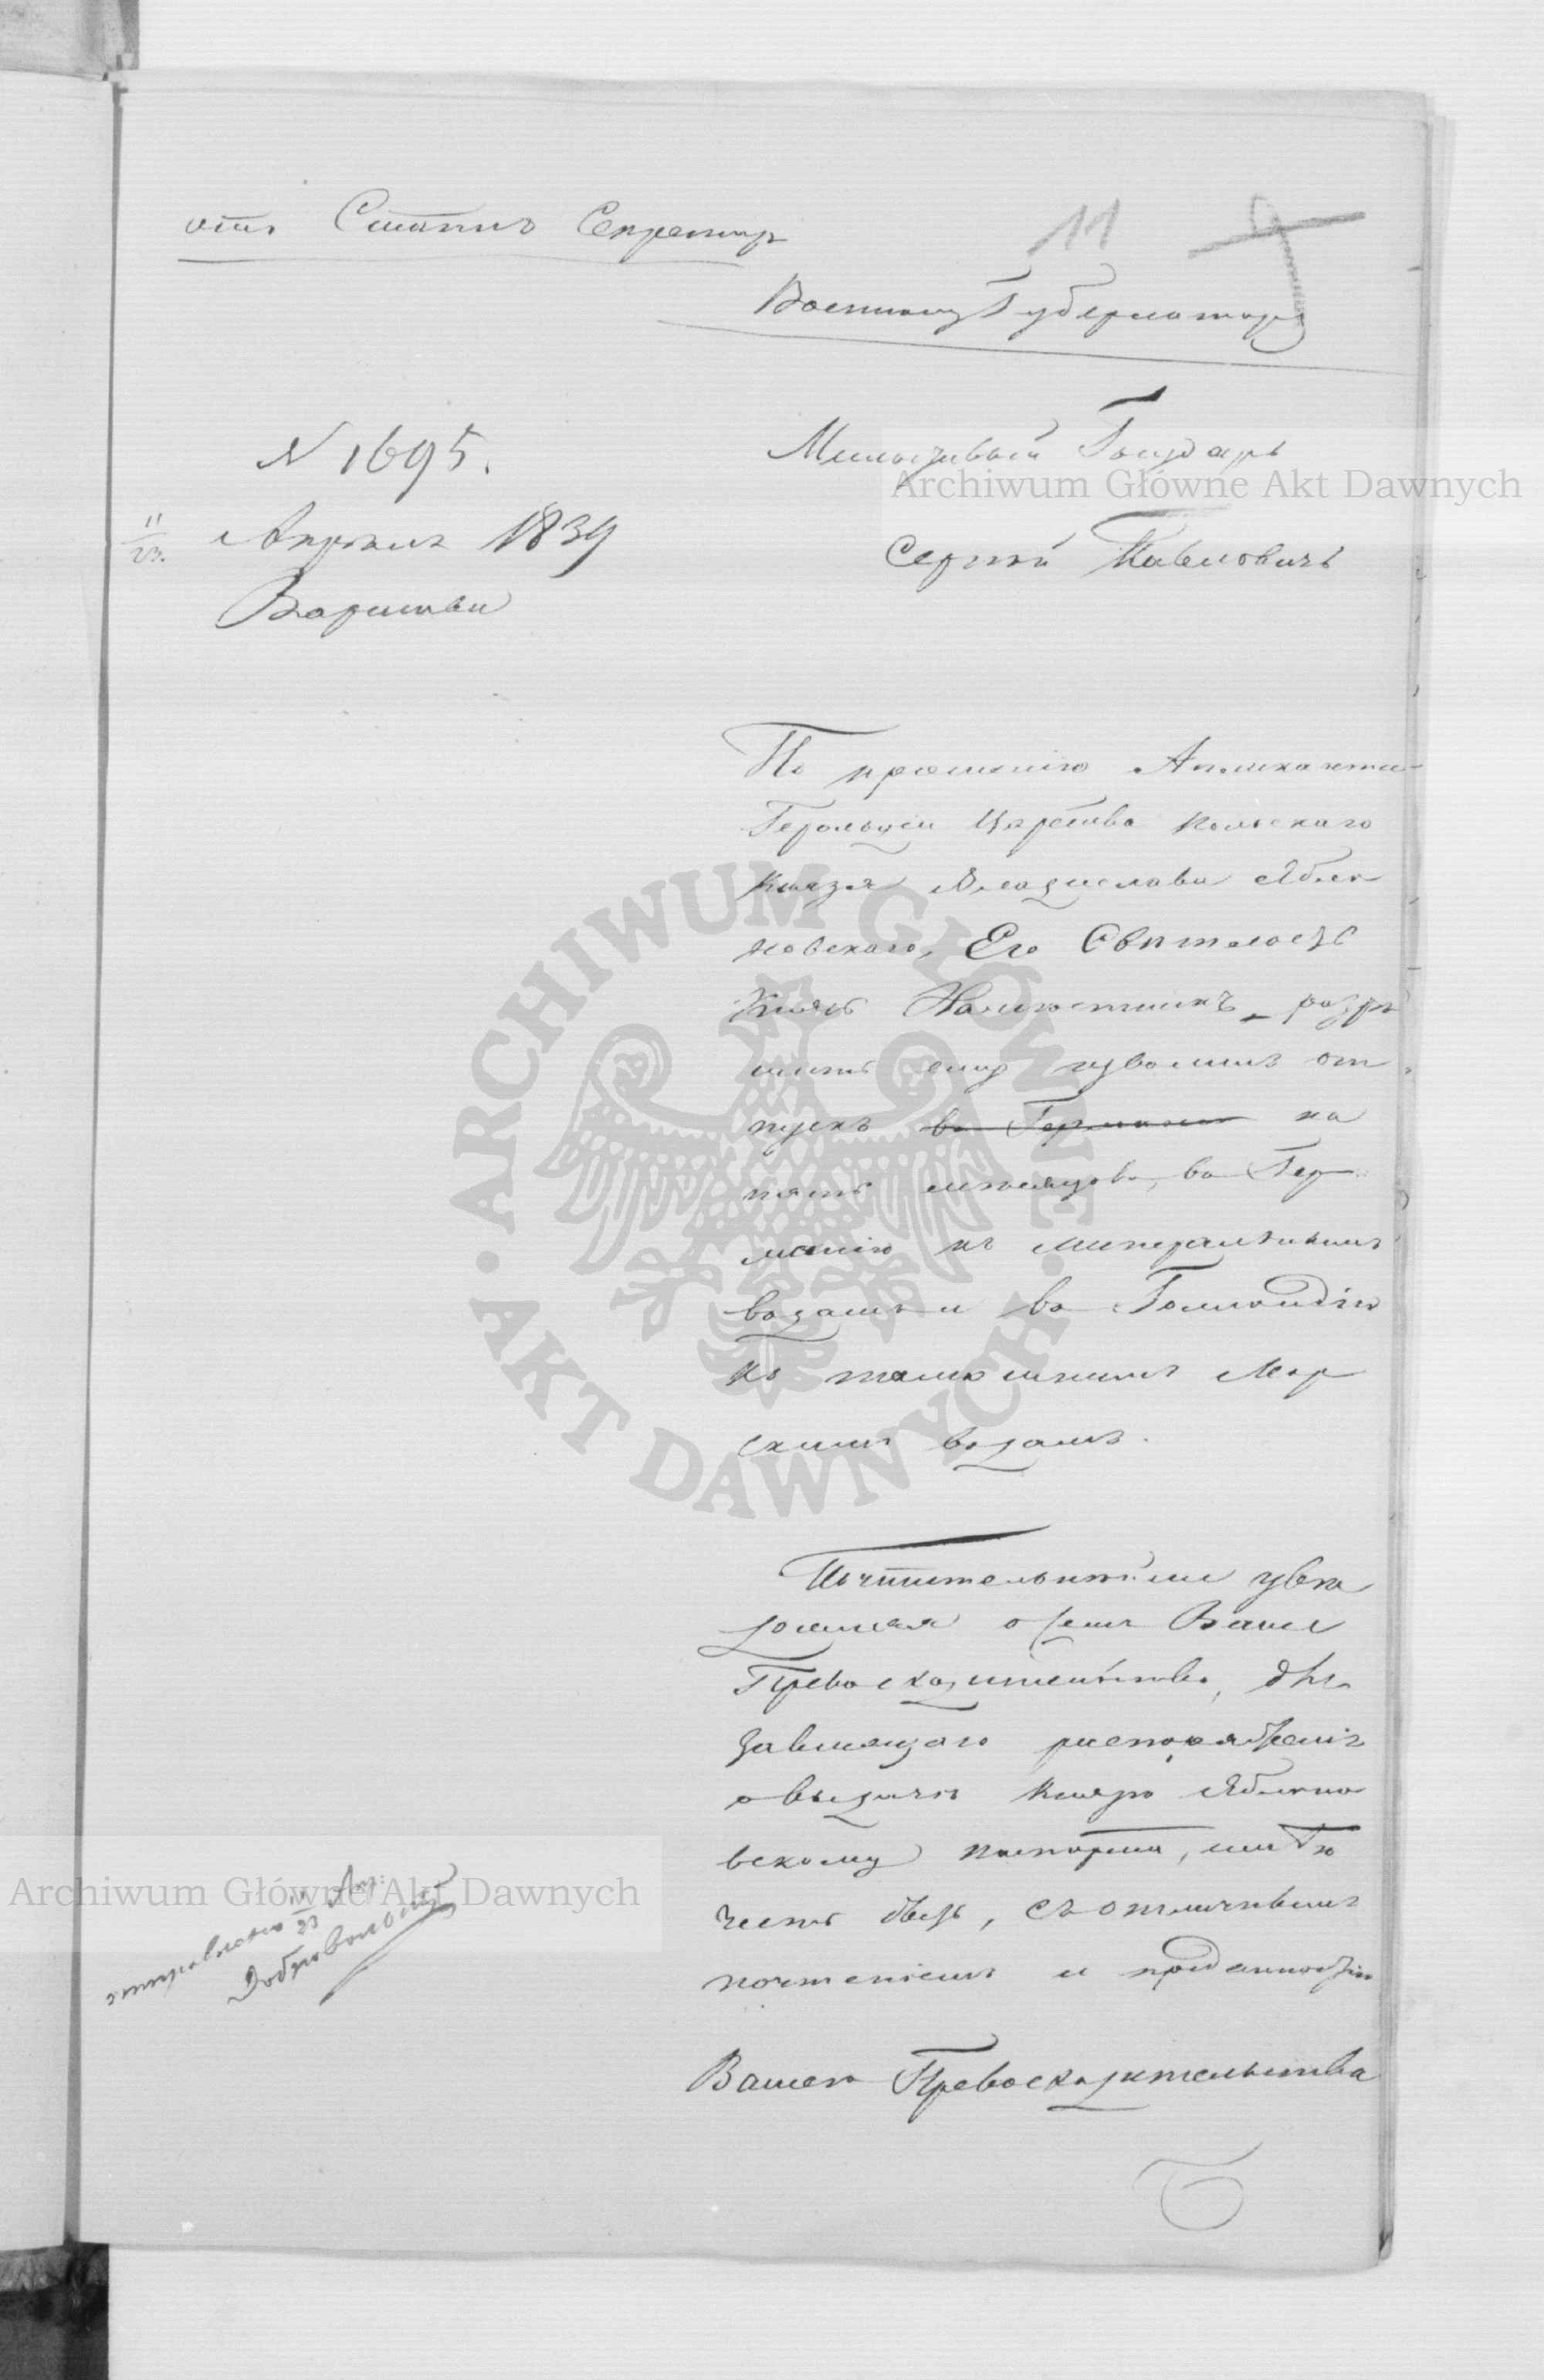 отъ Статсъ Секретар
11
Военному Губернатору
N 1695.
11/23. Апрѣля 1839
Варшава
Милостивый Государь
Сергѣй Павловичъ
По прошенію Аппликанта
Герольдіи Царства Польскаго
Князя Владислава Ябло
новскаго, Его Свѣтлость
Князь Намѣстникъ, разрѣ
шить ему изволилъ от
пускъ въ Германію на
пять мѣсяцовъ, въ Гер
манію къ минеральнымъ
водамъ и въ Голландію
къ тамошнимъ Мор
скимъ водамъ.
Почтительнѣйше увѣ
домляя о семъ Ваше
Превосходительство, для
зависящаго распоряженія
о выдачѣ Князю Яблоно
вскому паспорта, имѣю
честь быть, съ отличнымъ
почтеніемъ и преданностію
Вашего Превосходительства
отправлено 11/23 Апр:
Добровольскій
Archiwum Główne Akt Dawnych
Archiwum Główne Akt Dawnych
ARCHIWUM GŁÓWNE · AKT DAWNYCH ·